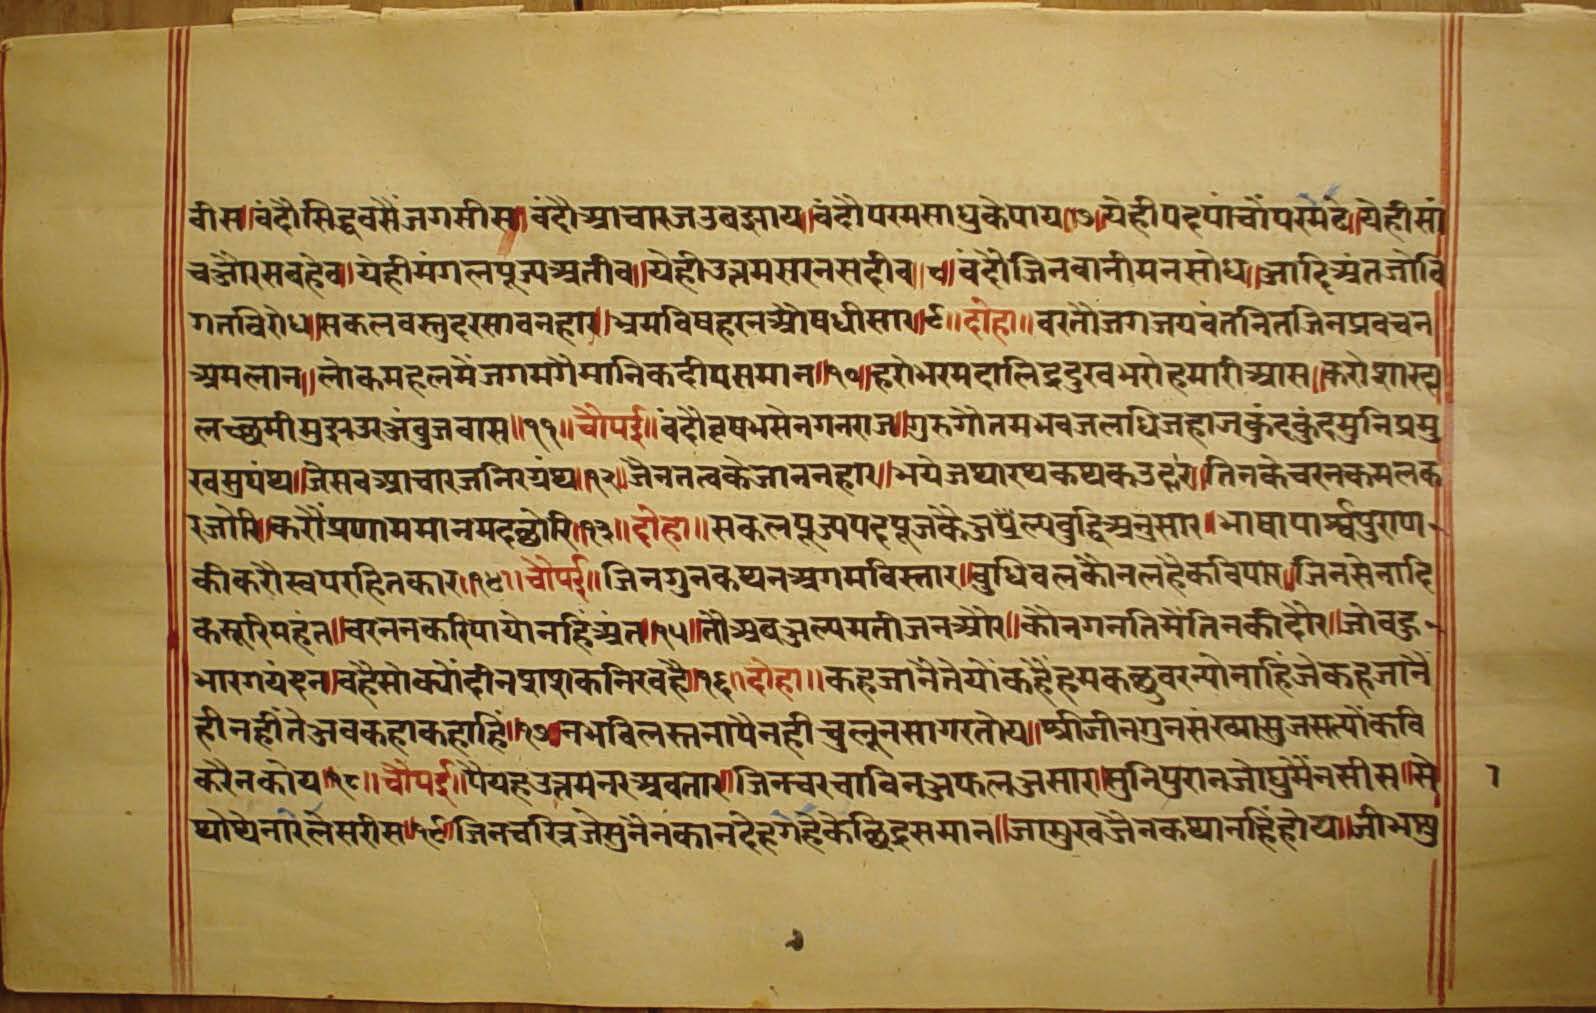 वीस॥वंदौसिद्धवसैंजगसीस॥वंदौआचारजउवझाय॥वंदौपरमसाधुकेपाय॥७॥येहीपदपांचौंपरमेटे॥येहीसां
चऔरसबहेव॥येहीमंगलपूज्यअतीव॥येहीउत्तमसरनसदीव॥८॥वंदौजिनवानीमनसोध॥आदिअंतजोवि
गतविरोध॥सकलवस्तुदरसावनहार॥भ्रमविषहरनऔषधीसार॥९॥दोहा॥वरतौजगजयवंतनितजिनप्रवचन
अमलान॥लोकमहलमैंजगमगैमानिकदीपसमान॥१०॥हरोभरमदालिद्रदुखभरोहमारीआस॥करोशारदा
लच्छमीमुझउरअंबुजवास॥११॥चौपई॥वंदौवृषभसेनगनराज॥गुरुगौतमभवजलधिजहाजकुंदकुंदमुनिप्रमु
खसुपंथ॥जेसबआचारजनिरग्रंथ॥१२॥जैनतत्वकेजाननहार॥भयेजथारथकथकउदार॥तिनकेचरनकमलक
रजोरि॥करौंप्रणाममानमदछोरि॥१३॥दोहा॥सकलपूज्यपदपूजकैअल्पबुद्धिअनुसार॥भाषापार्श्वपुराण
कीकरौस्वपरहितकार॥१४॥चौपई॥जिनगुनकथनअगमविस्तार॥बुधिबलकौनलहैकविपार॥जिनसेनादि
कसूरिमहंत॥चरननकरिपायोनहिंअंत॥१५॥तौअबअल्पमतीजनऔर॥कौनगनतिमैंतिनकीदौर॥जोबहु
भारगयंदन॥वहैसोक्योंदीनशशकनिखहै॥१६॥दोहा॥कहजानैतेयोंकहैंहमकछुवरन्योनाहिंजेकहजानैं
हीनहींतेअबकहाकहाहिं॥१७॥नभविलस्तनापैनहीचुलूनसागरतोय॥श्रीजीनगुनसंख्यासुजसत्योंकवि
करैनकोय॥१८॥चौपई॥पैयहउत्तमनरअवतार॥जिनचरचाविनअफलअसार॥सुनिपुरानजोघुमैंनसीस॥सो
थोथेनारेलसरीस॥१९॥जिनचरित्रजेसुनैनकानदेहगेहकेछिद्रसमान॥जामुखजैनकथानहिंहोय॥जीभभु
१
२